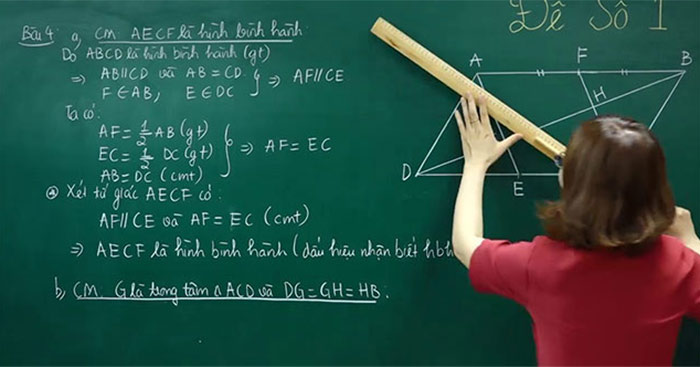 Đề Số 1
Bài 4: a, CM AECF là hình bình hành:
Do ABCD là hình bình hành (gt)
⇒ AB//CD và AB = CD } ⇒ AF//CE
F ∈ AB, E ∈ DC
Ta có:
AF = 1/2 AB (gt)
EC = 1/2 DC (gt) } ⇒ AF = EC
AB = DC (cmt)
Xét tứ giác AECF có:
AF//CE và AF = EC (cmt)
⇒ AECF là hình bình hành (dấu hiệu nhận biết hbh
b, CM G là trọng tâm ∆ ACD và DG = GH = HB.
A F B
H
D E